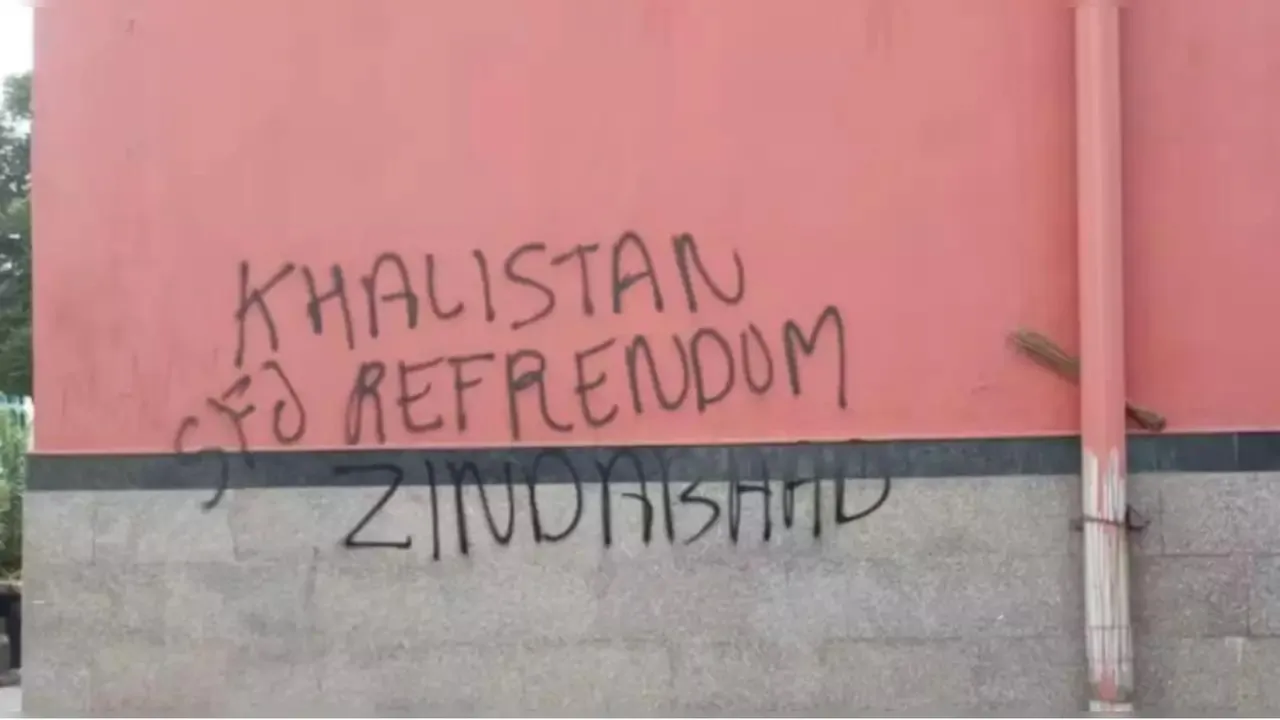 KHALISTAN
SFJ REFRENDOM
ZINDABAAD